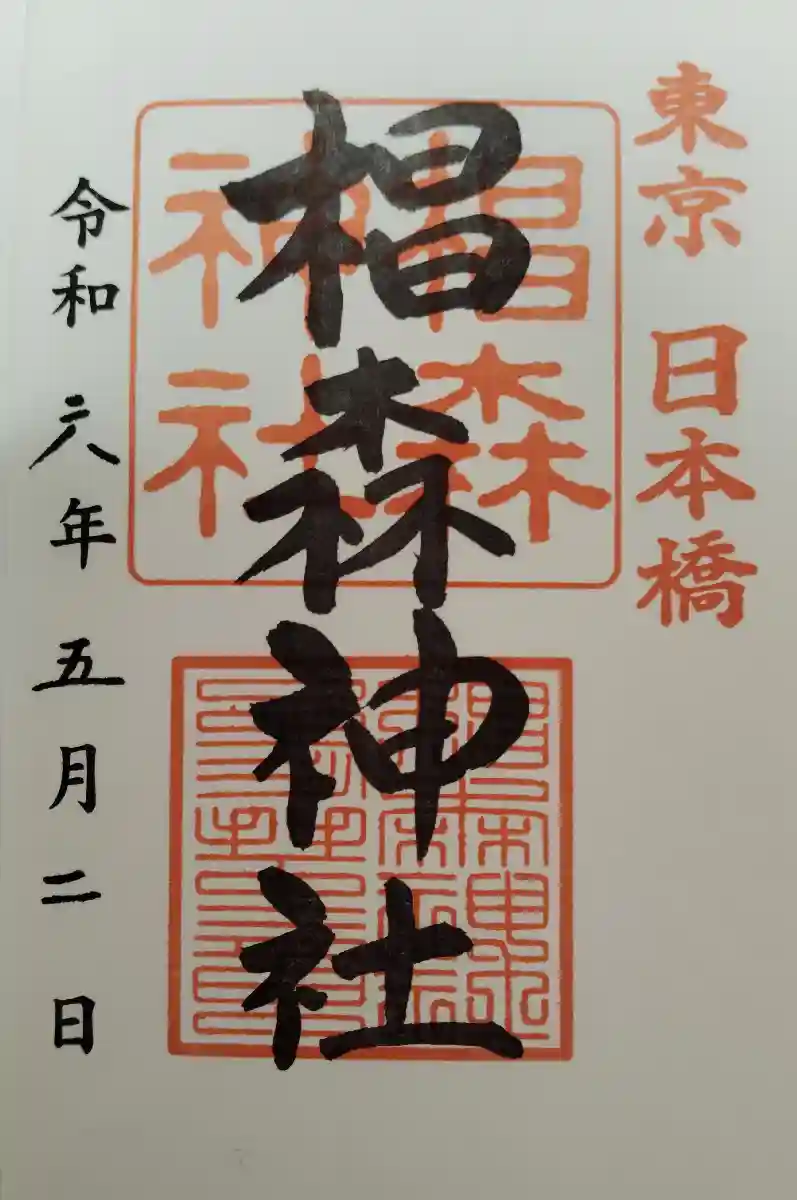 東京 日本橋
椙森神社
椙森
神社
令和 六年 五月 二日